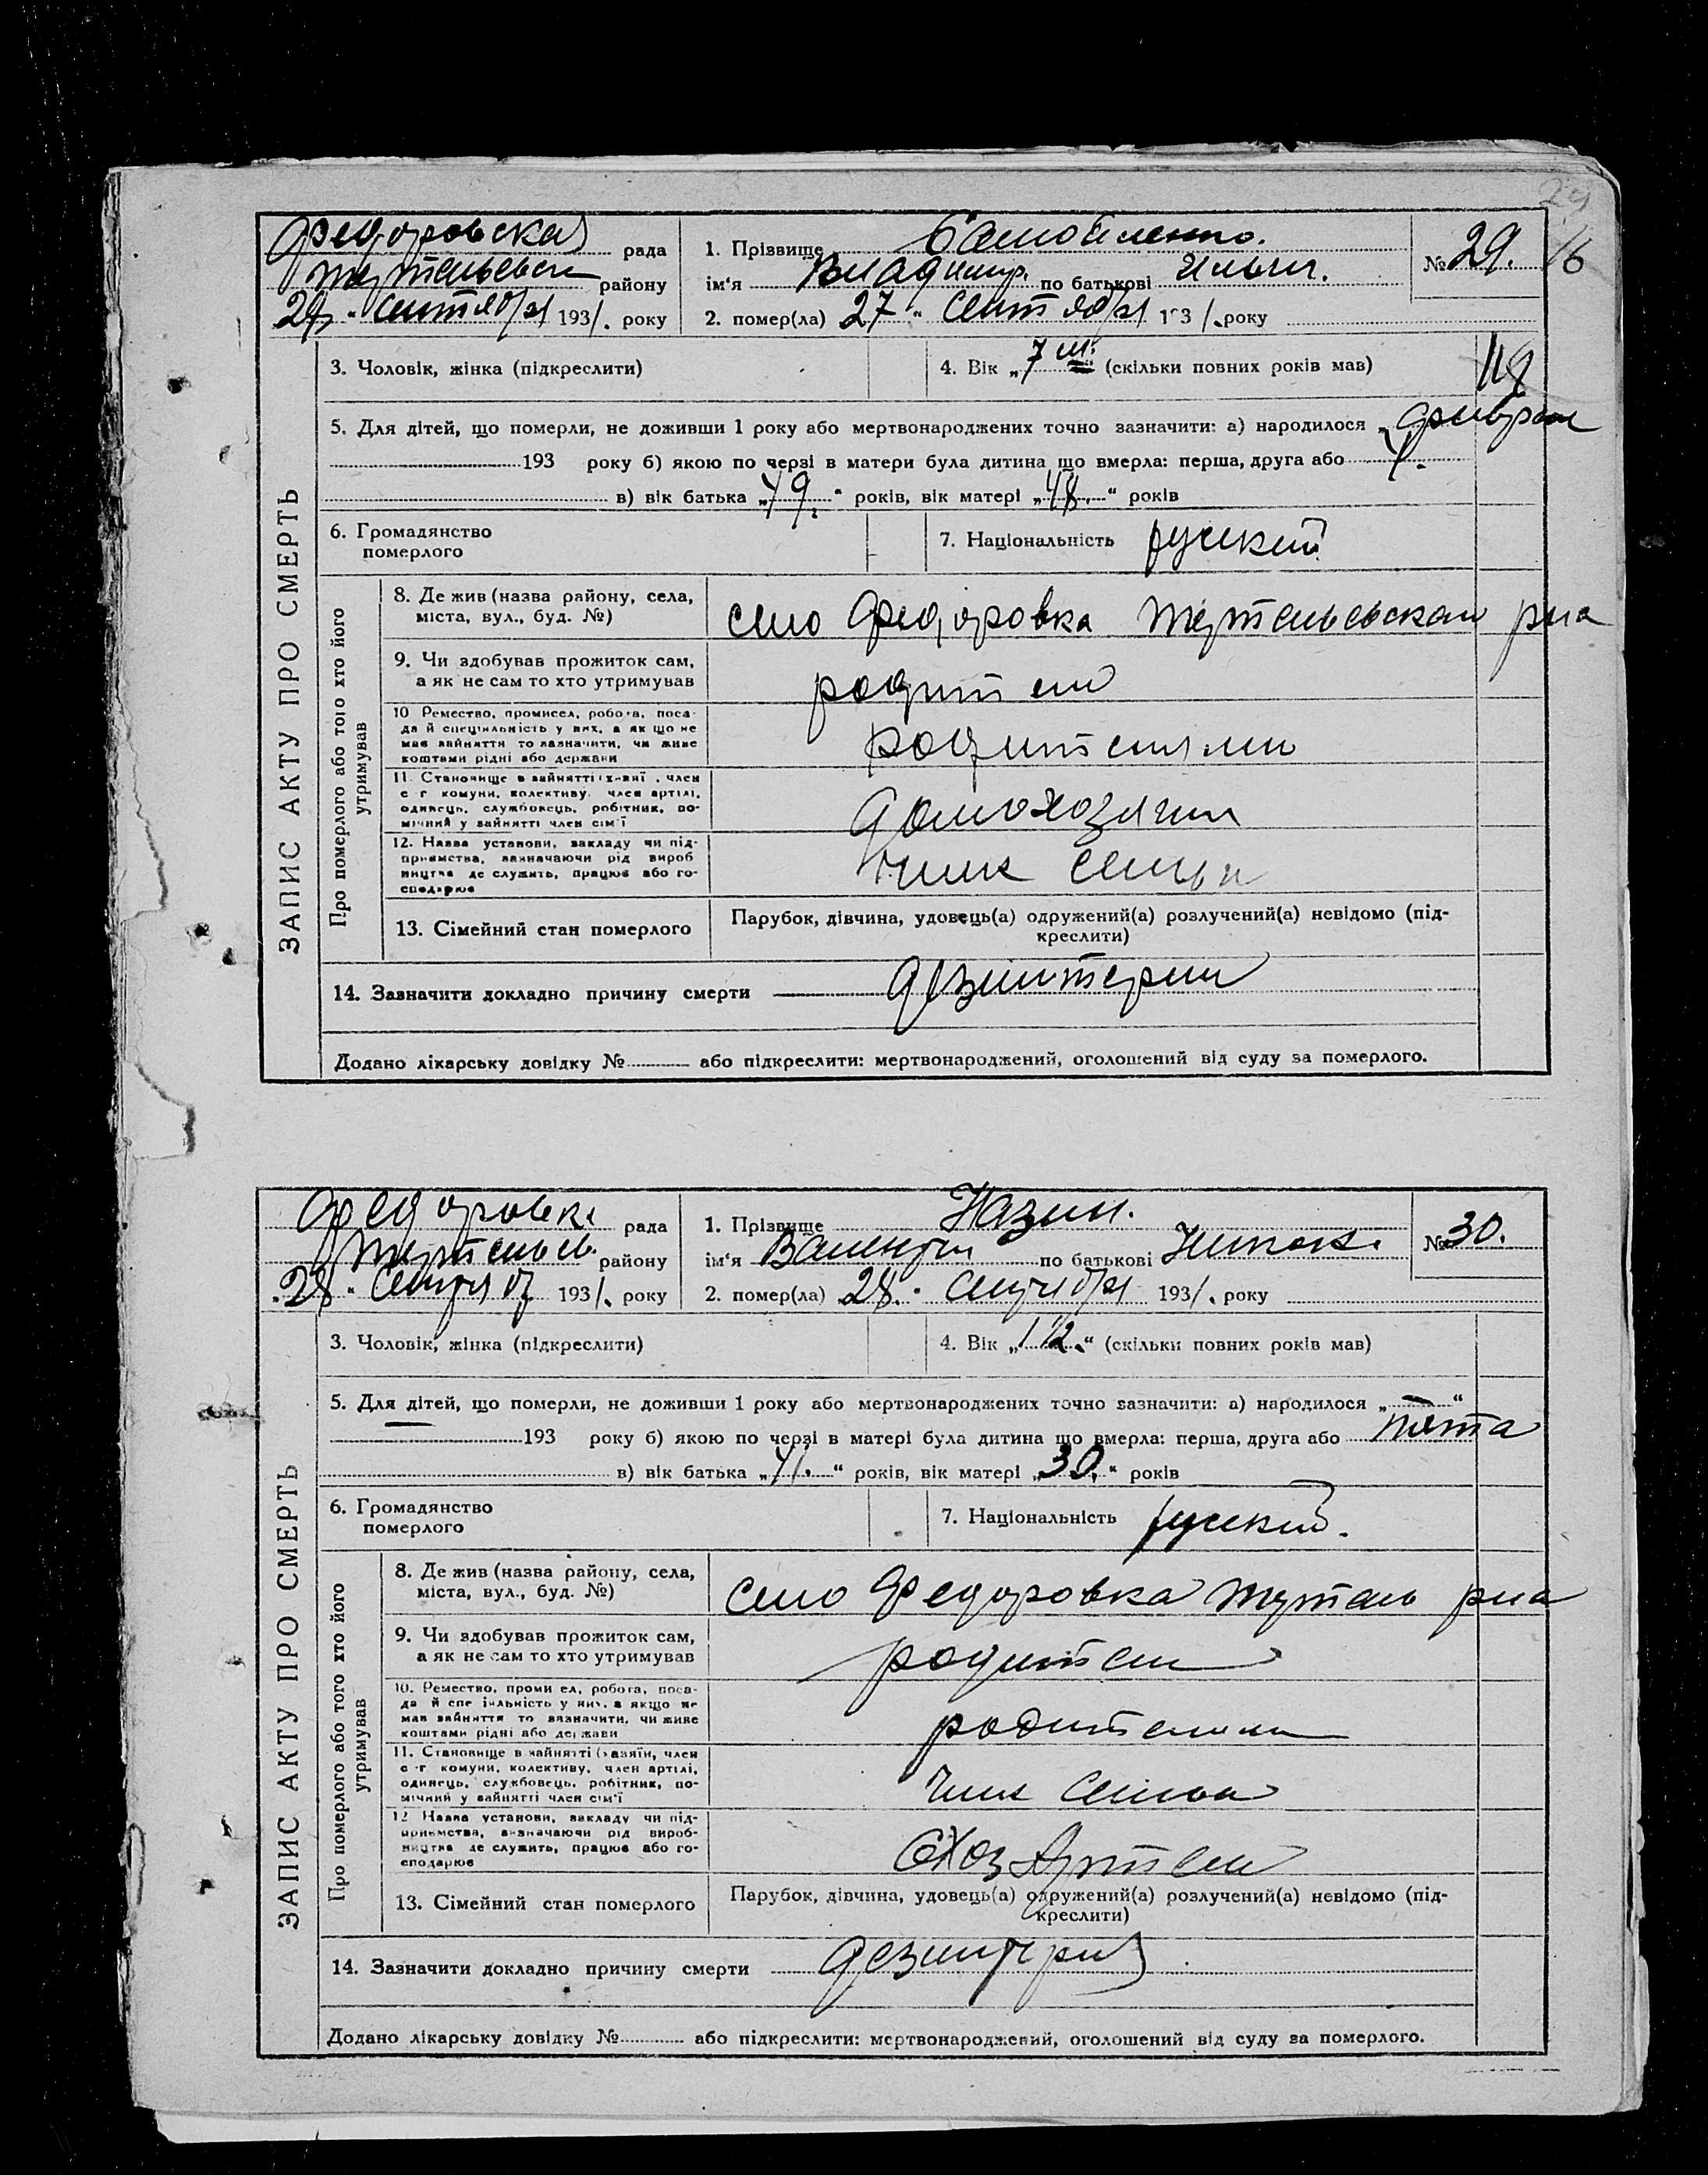 29
Федоровская рада
района
29 " Сентября 1931. року
1. Прізвище Самойленко.
ім'я Владимир. по батькові Ильич.
2. помер(ла) 27 " Сентября 1931. року
№ 29. 16
3. Чоловік, жінка (підкреслити)
4. Вік „7 м." (скільки повних років мав)
118
5. Для дітей, що померли, не доживши 1 року або мертвонароджених точно зазначити: а) народилося „
193 року б) якою по черзі в матери була дитина що вмерла: перша, друга або
в) вік батька „49." років, вік матері „48." років
6. Громадянство
померлого
7. Національність русский
ЗАПИС АКТУ ПРО СМЕРТЬ
Про померлого або того хто його
утримував
8. Де жив (назва району, села,
міста, вул., буд. №)
село Федоровка рна
9. Чи здобував прожиток сам,
а як не сам то хто утримував
родители
10 Ремество, промисел, робота, поса-
да й спеціяльність у них, а як що не
мав зайняття то зазначити, чи живе
коштами рідні або держави
родителями
11. Становище в зайнятті член
с г комуни, колективу, член артілі,
одинець, службовець, робітник, по-
мічний у зайнятті член сім'ї
домохозяин
12. Назва установи, закладу чи під-
приємства, зазначаючи рід вироб
ництва де служить, працює або го-
сподарює
член семьи
13. Сімейний стан померлого
Парубок, дівчина, удовець(а) одружений(а) розлучений(а) невідомо (під-
креслити)
14. Зазначити докладно причину смерти дезинтерия
Додано лікарську довідку № або підкреслити: мертвонароджений, оголошений від суду за померлого.
Федоровк. рада
району
„28" Сентяб 1931. року
1. Прізвище Назин.
ім'я Валентин по батькові
2. помер(ла) 28." Сентября 1931. року
№ 30.
3. Чоловік, жінка (підкреслити)
4. Вік „1 1/2." (скільки повних років мав)
5. Для дітей, що померли, не доживши 1 року або мертвонароджених точно зазначити: а) народилося „—"
193 року б) якою по черзі в матері була дитина що вмерла: перша, друга або пята
в) вік батька „41." років, вік матері „30." років
6. Громадянство
померлого
7. Національність русский.
ЗАПИС АКТУ ПРО СМЕРТЬ
Про померлого або того хто його
утримував
8. Де жив (назва району, села,
міста, вул., буд. №)
село Федоровка рна
9. Чи здобував прожиток сам,
а як не сам то хто утримував
родители
10. Ремество, проми ел, робота, поса-
да й спе іяльність у них, а якщо не
мав зайняття то зазначити, чи живе
коштами рідні або держави
родителями
11. Становище в зайнятті (хазяїн, член
с -г комуни, колективу, член артілі,
одинець, службовець, робітник, по-
мічний у зайнятті член сім'ї
член семьи
12 Назва установи, закладу чи під-
приємства, зазначаючи рід вироб-
ництва де служить, працює або го-
сподарює
СХоз Артели
13. Сімейний стан померлого
Парубок, дівчина, удовець(а) одружений(а) розлучений(а) невідомо (під-
креслити)
14. Зазначити докладно причину смерти дезинтерия
Додано лікарську довідку № або підкреслити: мертвонароджений, оголошений від суду за померлого.